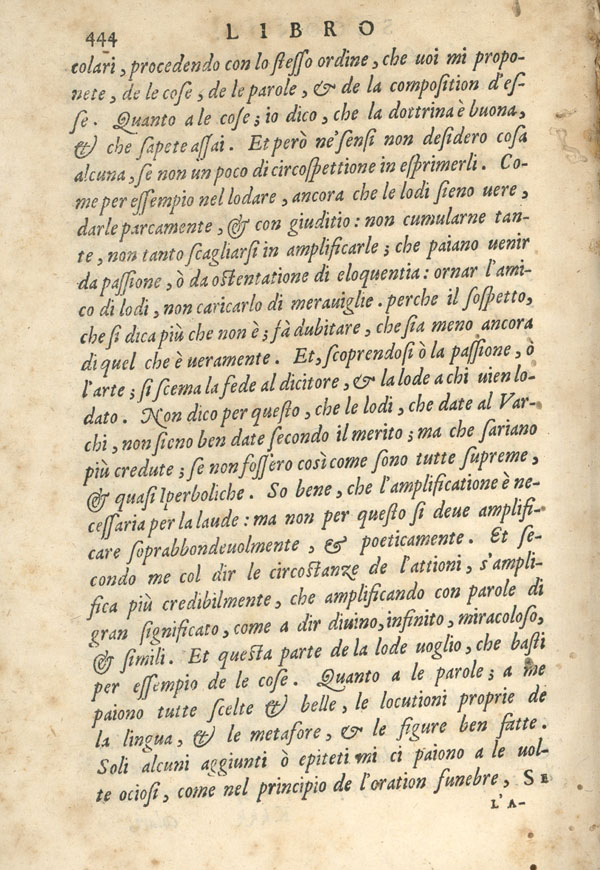 444 LIBRO
colari, procedendo con lo stesso ordine, che uoi mi propo-
nete, de le cose, de le parole, & de la composition d'es-
se. Quanto a le cose; io dico, che la dottrina è buona,
& che sapete assai. Et però ne' sensi non desidero cosa
alcuna, se non un poco di circospettione in esprimerli. Co-
me per essempio nel lodare, ancora che le lodi sieno uere,
darle parcamente, & con giuditio: non cumularne tan-
te, non tanto scagliarsi in amplificarle; che paiano uenir
da passione, ò da ostentatione di eloquentia: ornar l'ami-
co di lodi, non caricarlo di merauiglie. perche il sospetto,
che si dica più che non è; fà dubitare, che sia meno ancora
di quel che è ueramente. Et, scoprendosi ò la passione, ò
l'arte; si scema la fede al dicitore, & la lode a chi uien lo-
dato. Non dico per questo, che le lodi, che date al Var-
chi, non sieno ben date secondo il merito; ma che sariano
più credute; se non fossero così come sono tutte supreme,
& quasi Iperboliche. So bene, che l'amplificatione è ne-
cessaria per la laude: ma non per questo si deue amplifi-
care soprabbondeuolmente, & poeticamente. Et se-
condo me col dir le circostanze de l'attioni, s'ampli-
fica più credibilmente, che amplificando con parole di
gran significato, come a dir diuino, infinito, miracoloso,
& simili. Et questa parte de la lode uoglio, che basti
per essempio de le cose. Quanto a le parole; a me
paiono tutte scelte & belle, le locutioni proprie de
la lingua, & le metafore, & le figure ben fatte.
Soli alcuni aggiunti ò epiteti mi ci paiono a le uol-
te ociosi, come nel principio de l'oration funebre, SE
L'A-